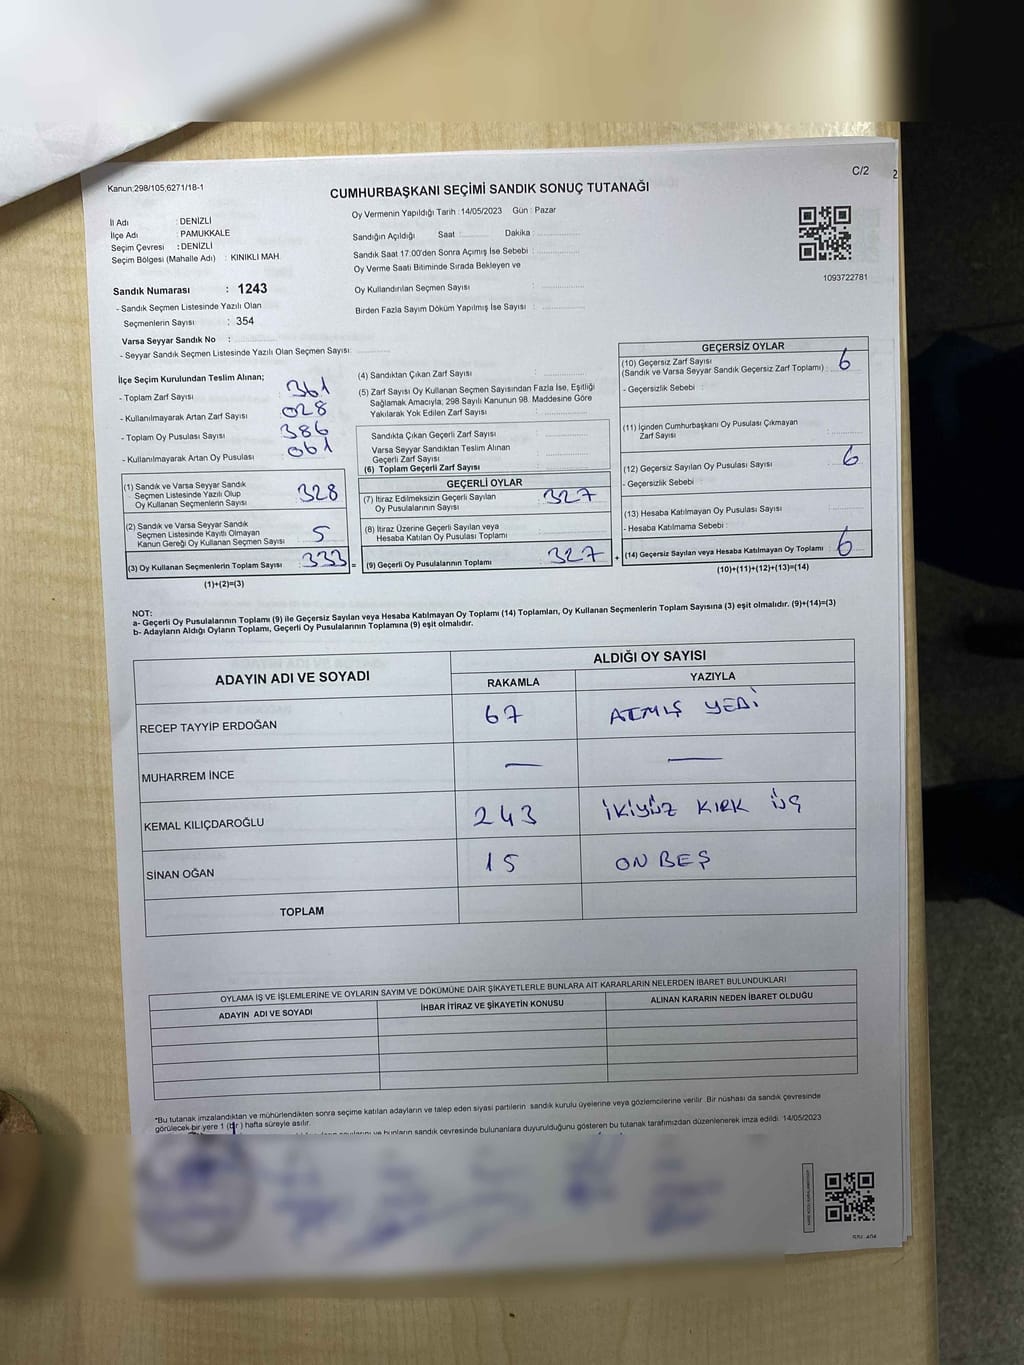 C/2
2
Kanun:298/105;6271/18-1
CUMHURBAŞKANI SEÇİMİ SANDIK SONUÇ TUTANAĞI
İl Adı : DENİZLİ
İlçe Adı : PAMUKKALE
Seçim Çevresi : DENİZLİ
Seçim Bölgesi (Mahalle Adı) : KINIKLI MAH.
Sandık Numarası : 1243
- Sandık Seçmen Listesinde Yazılı Olan
Seçmenlerin Sayısı : 354
Varsa Seyyar Sandık No :
- Seyyar Sandık Seçmen Listesinde Yazılı Olan Seçmen Sayısı:
Oy Vermenin Yapıldığı Tarih : 14/05/2023 Gün : Pazar
Sandığın Açıldığı Saat : Dakika :
Sandık Saat 17:00'den Sonra Açımış İse Sebebi :
Oy Verme Saati Bitiminde Sırada Bekleyen ve
Oy Kullandırılan Seçmen Sayısı :
Birden Fazla Sayım Döküm Yapılmış İse Sayısı :
1093722781
İlçe Seçim Kurulundan Teslim Alınan;
- Toplam Zarf Sayısı : 361
- Kullanılmayarak Artan Zarf Sayısı : 028
- Toplam Oy Pusulası Sayısı : 386
- Kullanılmayarak Artan Oy Pusulası : 061
(1) Sandık ve Varsa Seyyar Sandık
Seçmen Listesinde Yazılı Olup
Oy Kullanan Seçmenlerin Sayısı : 328
(2) Sandık ve Varsa Seyyar Sandık
Seçmen Listesinde Kayıtlı Olmayan
Kanun Gereği Oy Kullanan Seçmen Sayısı : 5
(3) Oy Kullanan Seçmenlerin Toplam Sayısı : 333 =
(1)+(2)=(3)
(4) Sandıktan Çıkan Zarf Sayısı :
(5) Zarf Sayısı Oy Kullanan Seçmen Sayısından Fazla İse, Eşitliği
Sağlamak Amacıyla; 298 Sayılı Kanunun 98. Maddesine Göre
Yakılarak Yok Edilen Zarf Sayısı :
Sandıkta Çıkan Geçerli Zarf Sayısı :
Varsa Seyyar Sandıktan Teslim Alınan
Geçerli Zarf Sayısı :
(6) Toplam Geçerli Zarf Sayısı :
GEÇERLİ OYLAR
(7) İtiraz Edilmeksizin Geçerli Sayılan
Oy Pusulalarının Sayısı : 327
(8) İtiraz Üzerine Geçerli Sayılan veya
Hesaba Katılan Oy Pusulası Toplamı :
(9) Geçerli Oy Pusulalarının Toplamı : 327 +
GEÇERSİZ OYLAR
(10) Geçersiz Zarf Sayısı
(Sandık ve Varsa Seyyar Sandık Geçersiz Zarf Toplamı) : 6
- Geçersizlik Sebebi :
(11) İçinden Cumhurbaşkanı Oy Pusulası Çıkmayan
Zarf Sayısı :
(12) Geçersiz Sayılan Oy Pusulası Sayısı : 6
- Geçersizlik Sebebi :
(13) Hesaba Katılmayan Oy Pusulası Sayısı :
- Hesaba Katılmama Sebebi :
(14) Geçersiz Sayılan veya Hesaba Katılmayan Oy Toplamı : 6
(10)+(11)+(12)+(13)=(14)
NOT:
a- Geçerli Oy Pusulalarının Toplamı (9) ile Geçersiz Sayılan veya Hesaba Katılmayan Oy Toplamı (14) Toplamları, Oy Kullanan Seçmenlerin Toplam Sayısına (3) eşit olmalıdır. (9)+(14)=(3)
b- Adayların Aldığı Oyların Toplamı, Geçerli Oy Pusulalarının Toplamına (9) eşit olmalıdır.
ADAYIN ADI VE SOYADI
ALDIĞI OY SAYISI
RAKAMLA YAZIYLA
RECEP TAYYİP ERDOĞAN 67 ATMIŞ YEDİ
MUHARREM İNCE — —
KEMAL KILIÇDAROĞLU 243 İKİYÜZ KIRK ÜÇ
SİNAN OĞAN 15 ON BEŞ
TOPLAM
OYLAMA İŞ VE İŞLEMLERİNE VE OYLARIN SAYIM VE DÖKÜMÜNE DAİR ŞİKAYETLERLE BUNLARA AİT KARARLARIN NELERDEN İBARET BULUNDUKLARI
ADAYIN ADI VE SOYADI İHBAR İTİRAZ VE ŞİKAYETİN KONUSU ALINAN KARARIN NEDEN İBARET OLDUĞU
*Bu tutanak imzalandıktan ve mühürlendikten sonra seçime katılan adayların ve talep eden siyasi partilerin sandık kurulu üyelerine veya gözlemcilerine verilir. Bir nüshası da sandık çevresinde
görülecek bir yere 1 (bir) hafta süreyle asılır.
ve bunların sandık çevresinde bulunanlara duyurulduğunu gösteren bu tutanak tarafımızdan düzenlenerek imza edildi. 14/05/2023